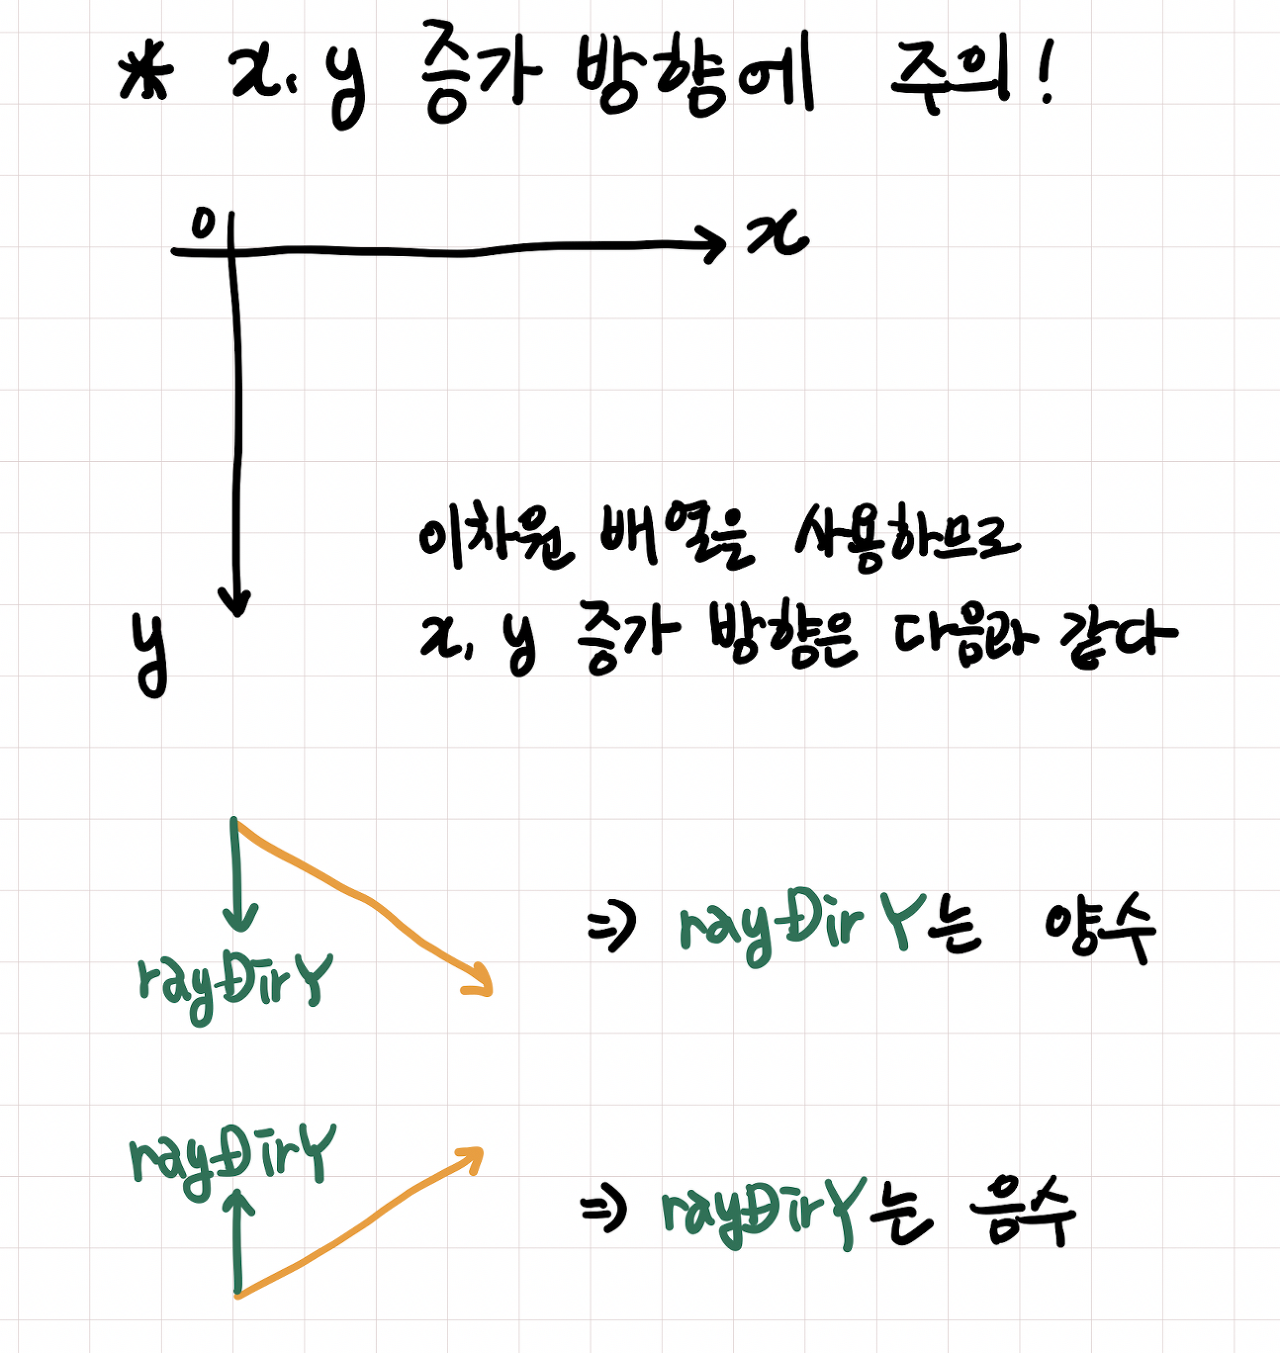 * x, y 증가 방향에 주의!
0
x
이차원 배열을 사용하므로
x, y 증가 방향은 다음과 같다
y
=> rayDirY는 양수
rayDirY
rayDirY
=> rayDirY는 음수